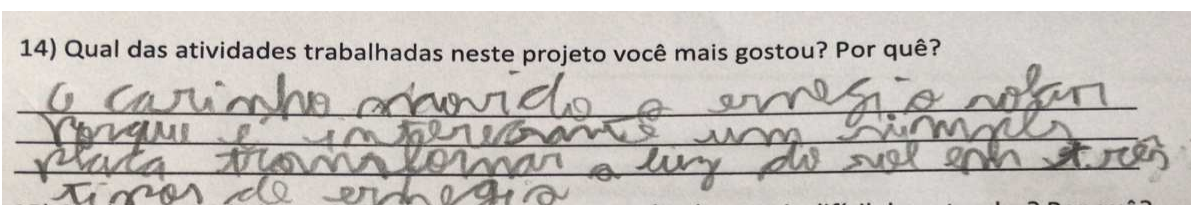 14) Qual das atividades trabalhadas neste projeto você mais gostou? Por quê?
O carinho movido a ernegia solar
Porque é interesante um simples
placa transformar a luz do sol enh três
tipos de enhegia